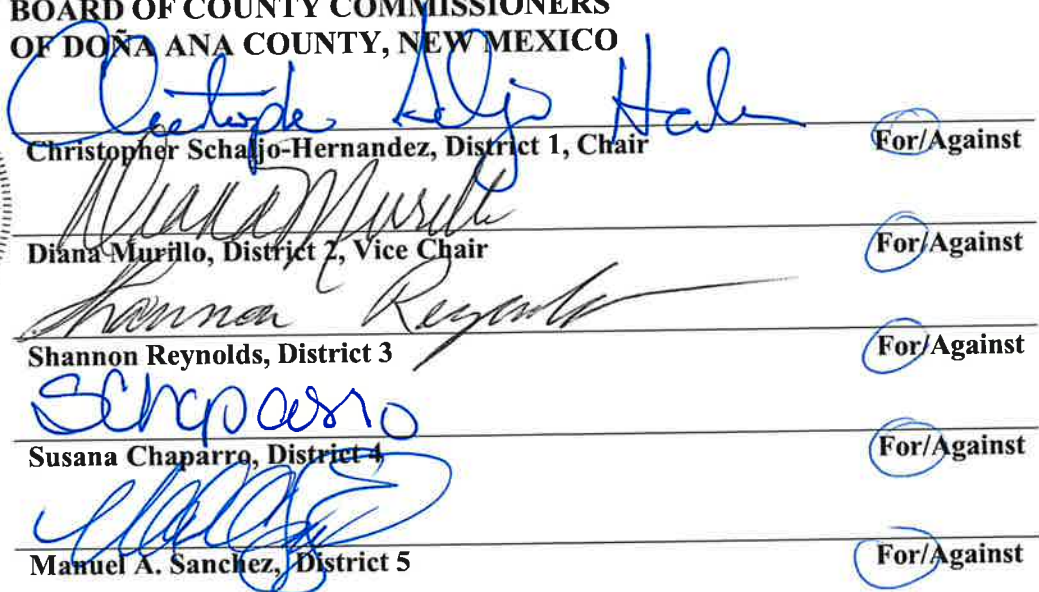 BOARD OF COUNTY COMMISSIONERS
OF DOÑA ANA COUNTY, NEW MEXICO
Christopher Schaljo-Hernandez, District 1, Chair For/Against
Diana Murillo
Diana Murillo, District 2, Vice Chair For/Against
Shannon Reynolds
Shannon Reynolds, District 3 For/Against
SChaparro
Susana Chaparro, District 4 For/Against
Manuel A. Sanchez, District 5 For/Against